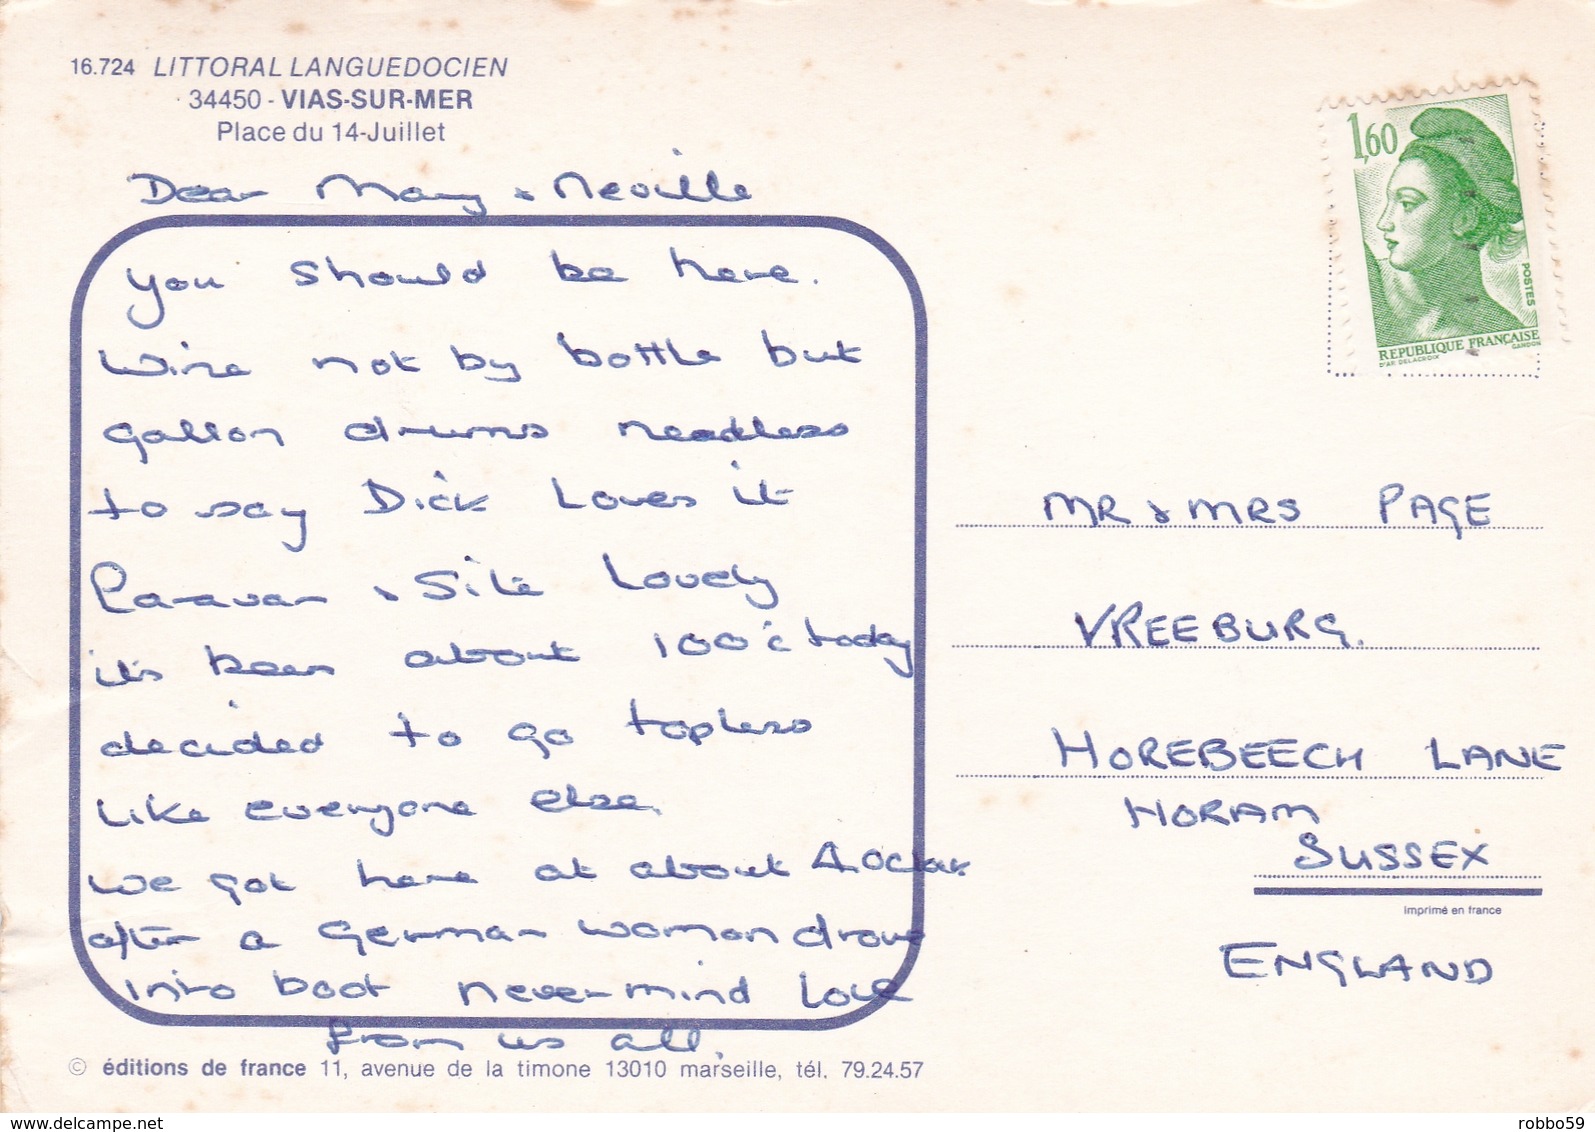 16.724 LITTORAL LANGUEDOCIEN
34450 - VIAS-SUR-MER
Place du 14-Juillet
Dear Mary & Neville
you should be here.
Wine not by bottle but
gallon drums needless
to say Dick Loves it
Caravan & Site Lovely
it's been about 100°c today
decided to go topless
Like everyone else.
we got here at about 4.oclock
after a German woman drove
into boot never mind Love
from us all.
© éditions de france 11, avenue de la timone 13010 marseille, tél. 79.24.57
1,60
POSTES
REPUBLIQUE FRANÇAISE
D'AP. DELACROIX GANDON
MR & MRS PAGE
VREEBURG.
HOREBEECH LANE
HORAM
SUSSEX
imprimé en france
ENGLAND
delcampe.net
robbo59